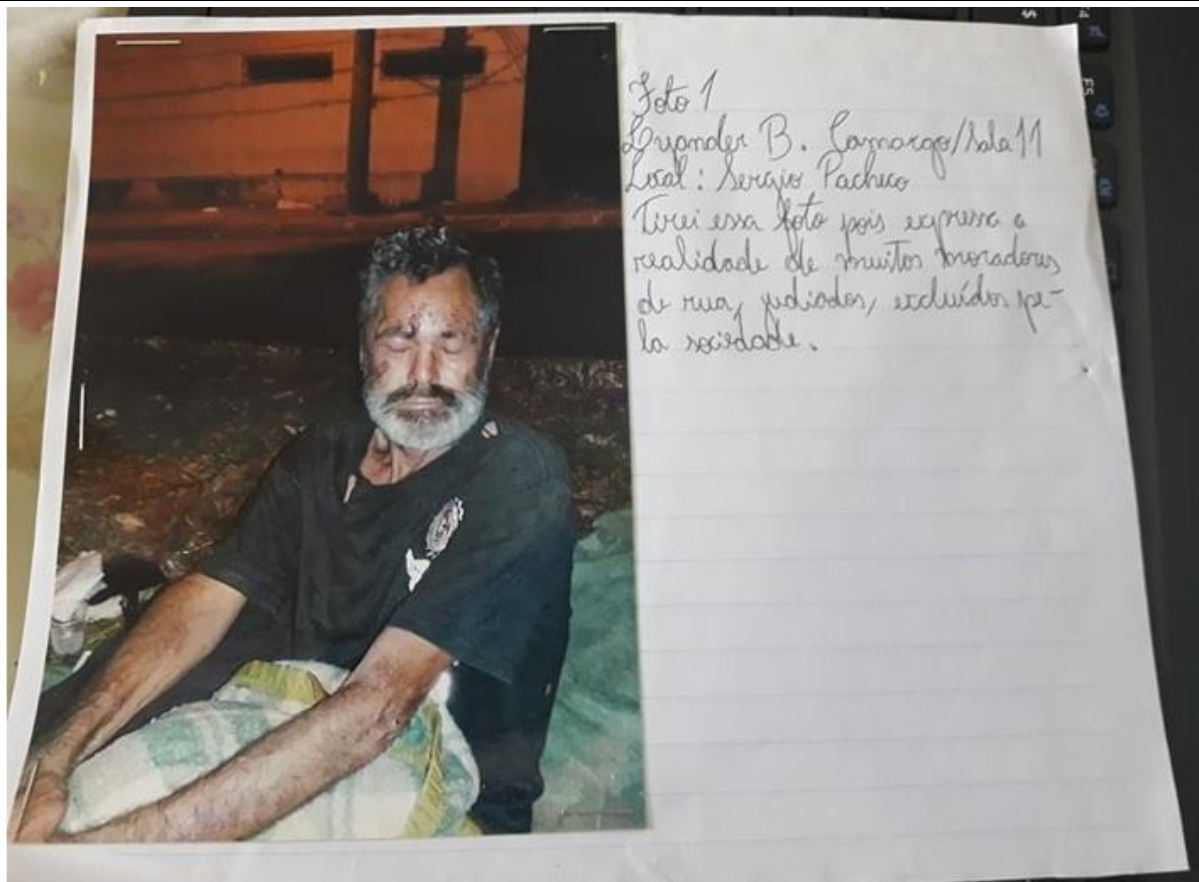 Foto 1
Lyander B. Camargo/Sala 11
Local: Sergio Pacheco
Tirei essa foto pois expressa a
realidade de muitos moradores
de rua, judiados, excluídos pe-
la sociedade.
$
F5